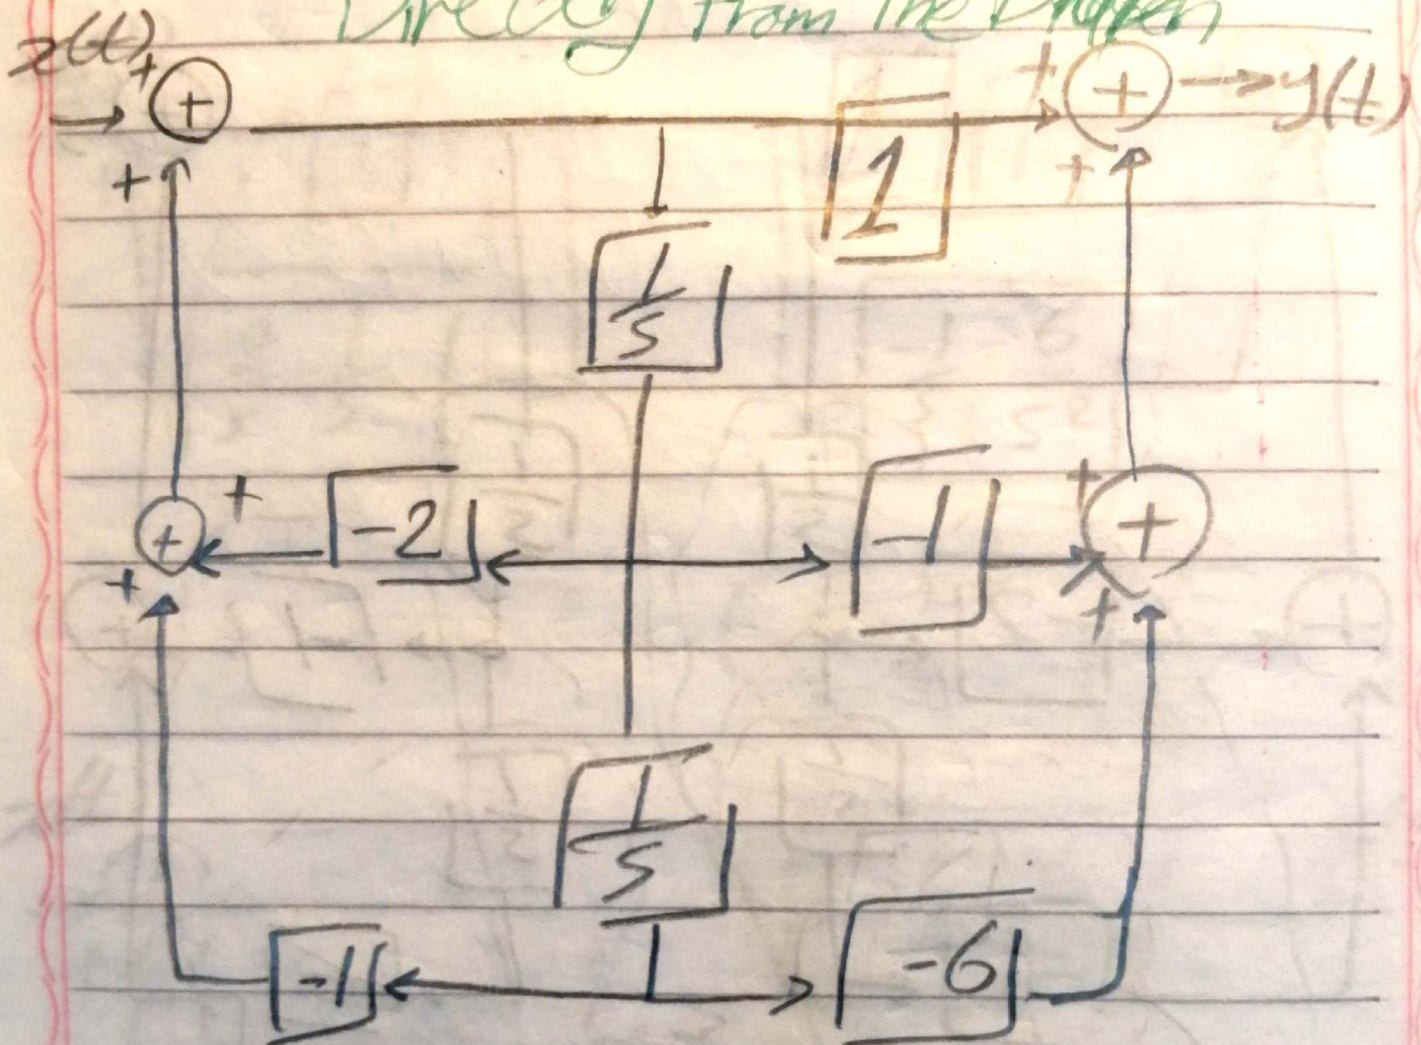 Directly from the
x(t) + + + + → y(t)
+ 1 +
1/s
+ -2 -1 + +
+ + +
1/s
-1 -6